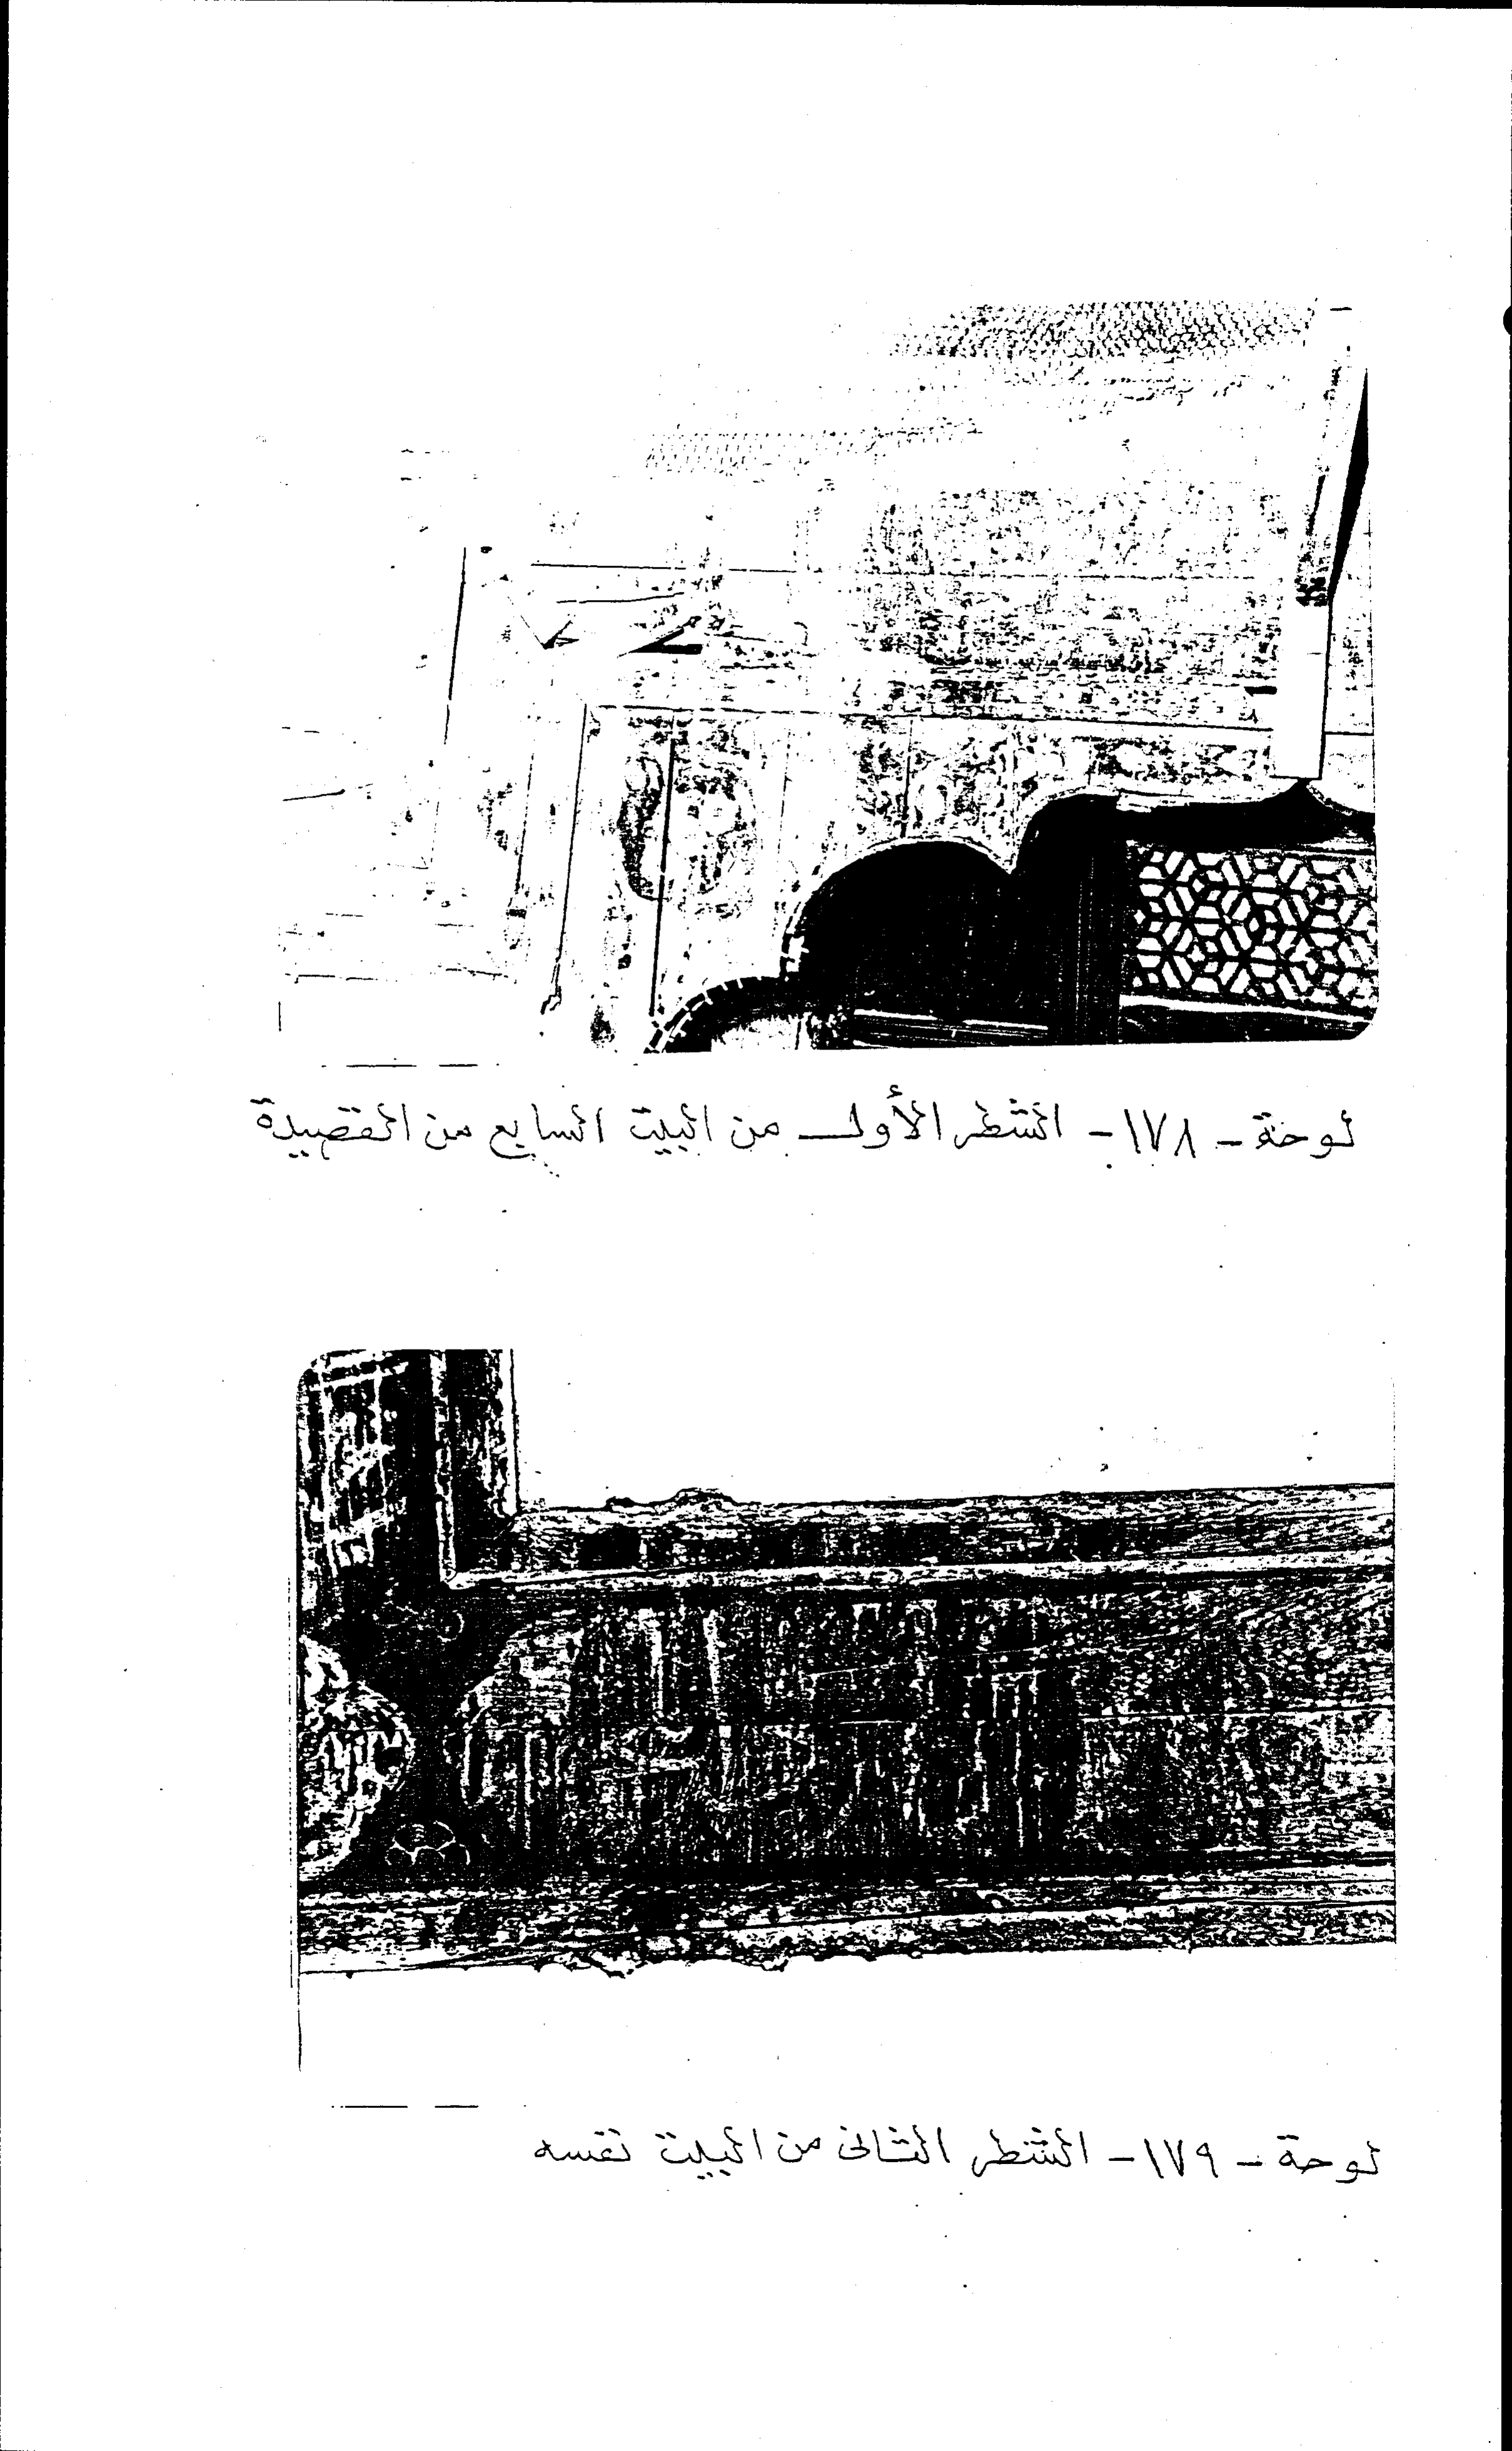 لوحة - ١٧٨ - الشطر الأول من البيت السابع من القصيدة
لوحة - ١٧٩ - الشطر الثانى من البيت نفسه